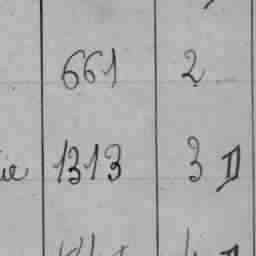 661 2
ie 1313 3 II